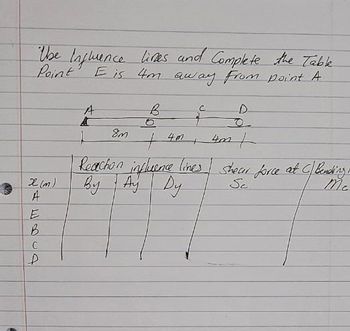 Use Influence lines and Complete the Table
Point E is 4m away from point A
A B C D
8m 4m 4m
Reaction influence lines Shear force at C Bending
x(m) By Ay Dy Sc Mc
A
E
B
C
D